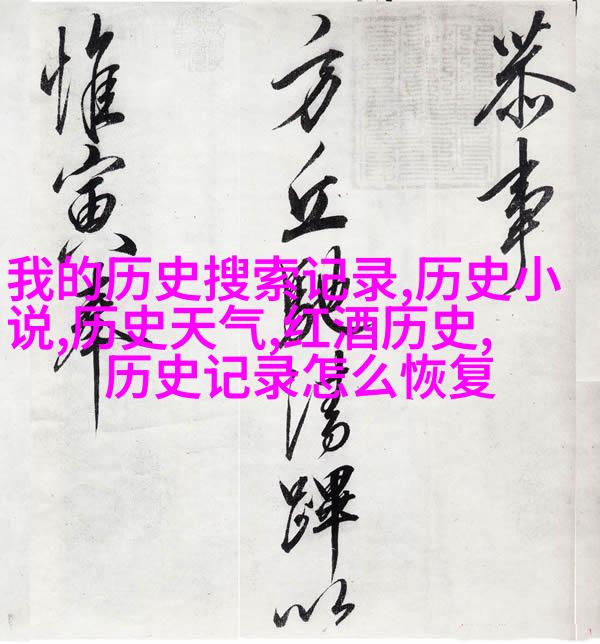 恭事
方丘馳清蹕以
惟寅奉
我的历史搜索记录,历史小
说,历史天气,红酒历史,
历史记录怎么恢复